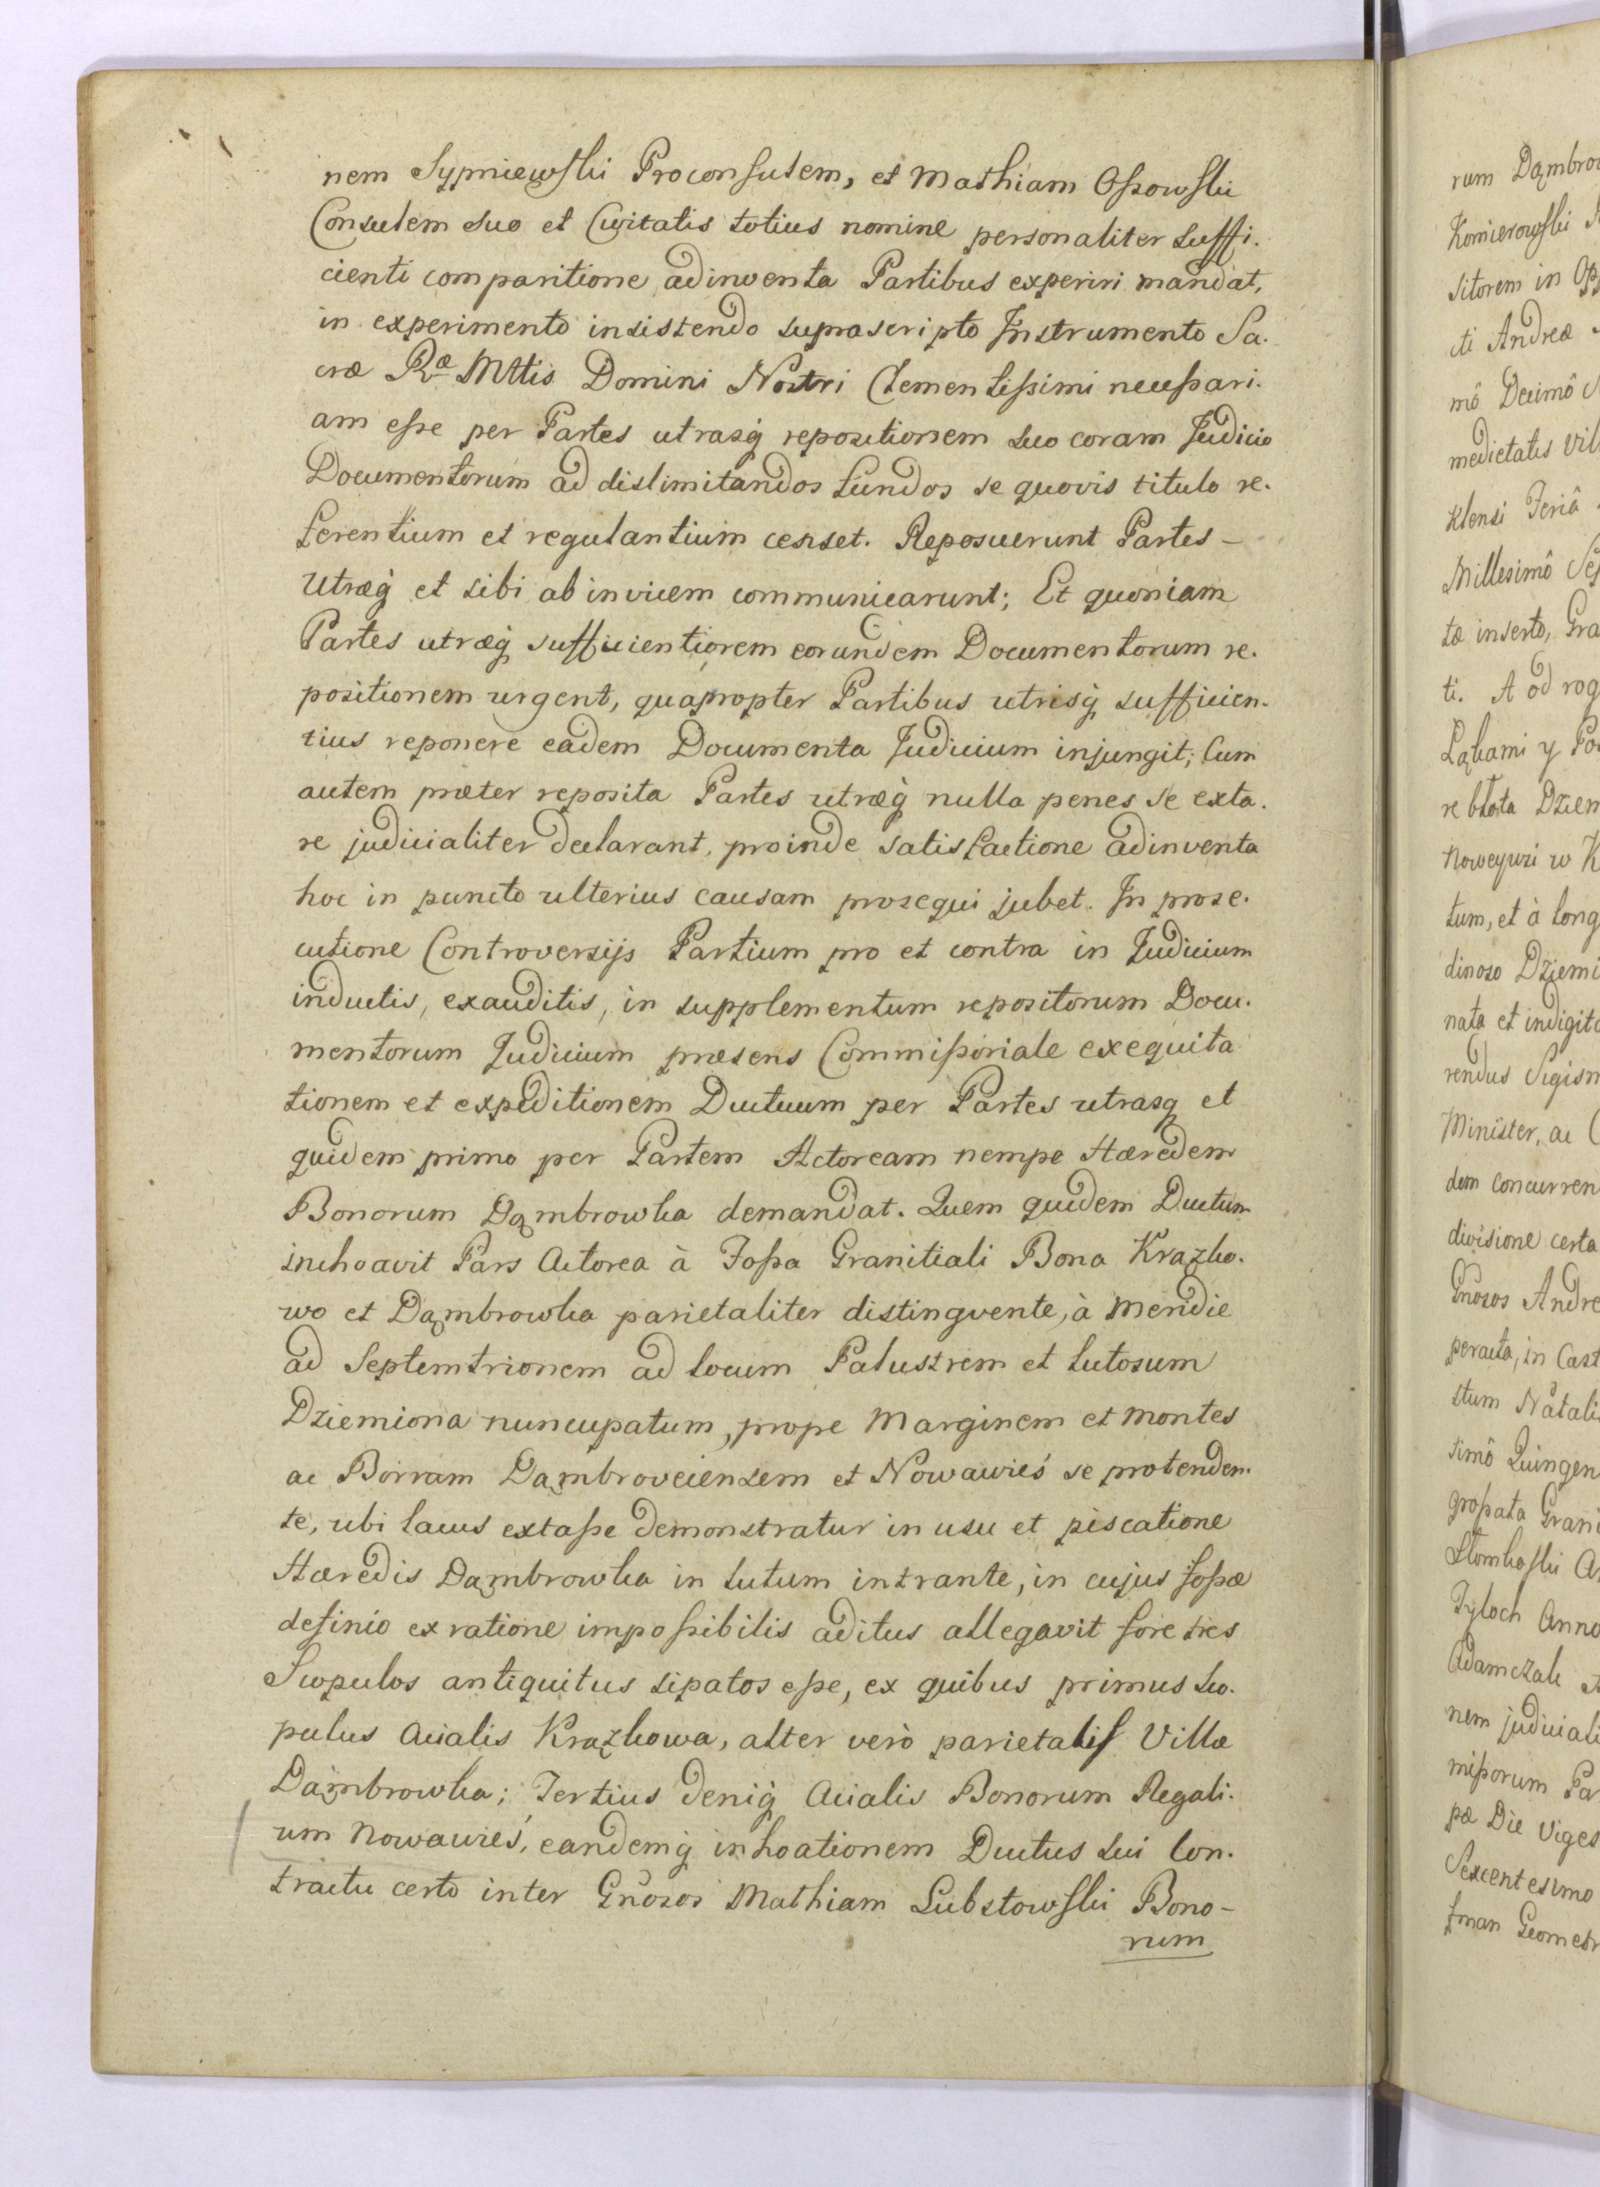 nem Sypniewski Proconsulem, et Mathiam Ossowski
Consulem suo et Civitatis totius nomine personaliter suffi-
cienti comparitione adinventa Partibus experiri mandat,
in experimento insistendo suprascripto Instrumento Sa-
cræ Ræ Mttis Domini Nostri Clementissimi necessari-
am esse per Partes utrasq repositionem suo coram Judicio
Documentorum ad dislimitandos fundos se quovis titulo re-
ferentium et regulantium censet. Reposuerunt Partes –
Utræq et sibi ab invicem communicarunt; Et quoniam
Partes utræq sufficientiorem eorundem Documentorum re-
positionem urgent, quapropter Partibus utrisq sufficien-
tius reponere eadem Documenta Judicium injungit; Cum
autem præter reposita Partes utræq nulla penes se exta-
re judicialiter declarant, proinde satisfactione adinventa
hoc in puncto ulterius causam prosequi jubet. In prose-
cutione Controversijs Partium pro et contra in Judicium
inductis, exauditis, in supplementum repositorum Docu-
mentorum Judicium præsens Commissoriale exequita
tionem et expeditionem Ductuum per Partes utrasq et
quidem primo per Partem Actoream nempe Hæredem
Bonorum Dąmbrowka demandat. Quem quidem Ductum
inchoavit Pars Actorea à Fossa Granitiali Bona Krązko-
wo et Dąmbrowka parietaliter distingvente, à meridie
ad Septemtrionem ad locum Palustrem et lutosum
Dziemiona nuncupatum, prope Marginem et montes
ac Borram Dąmbroveiensem et Nowawieś se protenden-
te, ubi lacus extasse demonstratur in usu et piscatione
Hæredis Dąmbrowka in lutum intrante, in cujus fossæ
definio ex ratione impossibilis aditus allegavit fore tres
Scopulos antiquitus sipatos esse, ex quibus primus Sco-
pulus Acialis Krązkowa, alter verò parietalis Villæ
Dąmbrowka; Tertius deniq Acialis Bonorum Regali-
um Nowawieś, eandemq inhoationem Ductus sui Con-
tractu certo inter Gñosos Mathiam Lubstowski Bono-
rum
rum Dąmbrow
Komierowski
sitorem in Op
cti Andreæ
mô Decimô
medietatis vil
klensi Feriâ
Millesimô Sep
tæ inserto, Gra
ti. A od rog
Łąkami y Po
re błota Dziem
Noweywsi w K
tum, et à long
dinoso Dziemi
nata et indigita
rendus Sigism
Minister, ac C
dem concurren
divisione certa
Gñosos Andre
peracta, in Cast
stum Natali
simô Quingen
grossata Grani
Tyloch Anno
Adamczak
nem judiciali
missorum Pa
pæ Die Viges
Sexcentesimo
fman Geometr